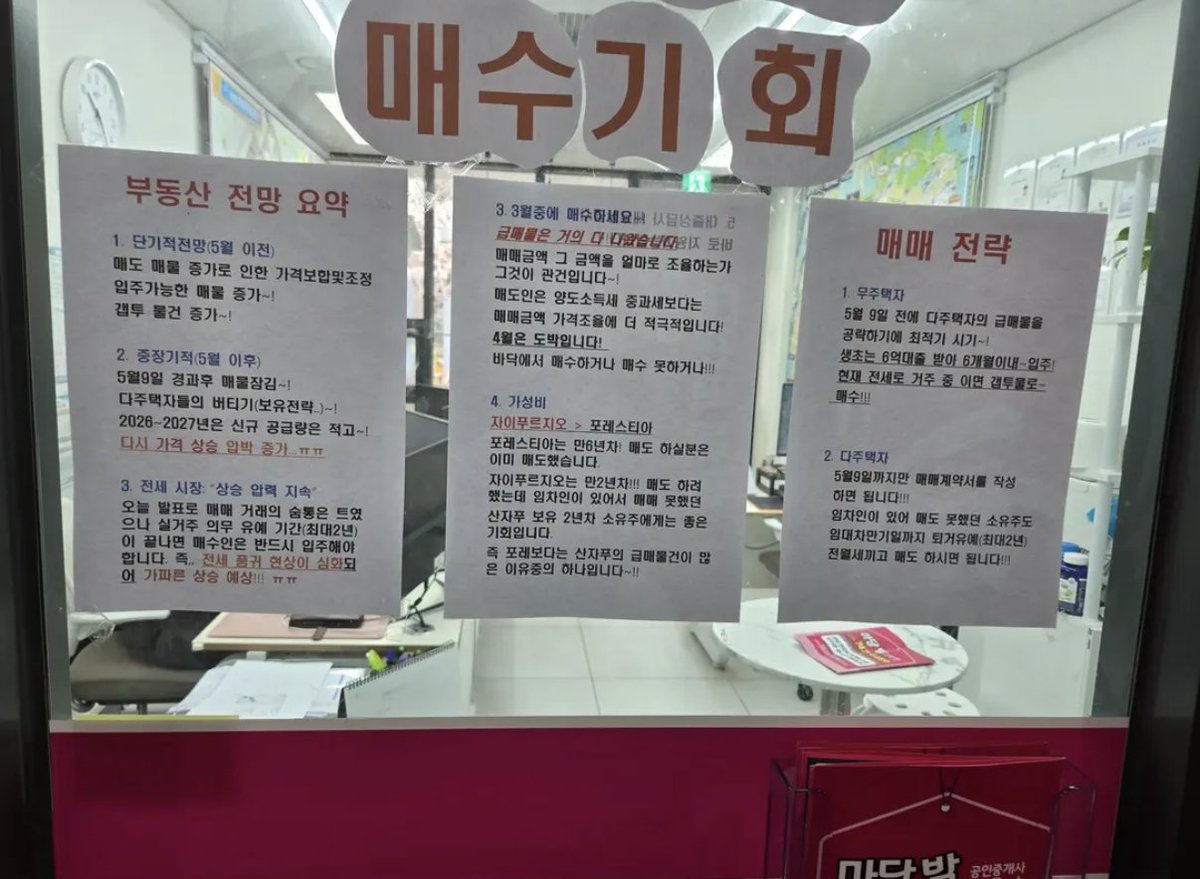 매수기회
부동산 전망 요약
1. 단기적전망(5월 이전)
매도 매물 증가로 인한 가격보합및조정
입주가능한 매물 증가~!
갭투 물건 증가~!
2. 중장기적(5월 이후)
5월9일 경과후 매물잠김~!
다주택자들의 버티기(보유전략..)~!
2026~2027년은 신규 공급량은 적고~!
다시 가격 상승 압박 증가...ㅠㅠ
3. 전세 시장: "상승 압력 지속"
오늘 발표로 매매 거래의 숨통은 트였
으나 실거주 의무 유예 기간(최대2년)
이 끝나면 매수인은 반드시 입주해야
합니다. 즉,, 전세 품귀 현상이 심화되
어 가파른 상승 예상!!! ㅠㅠ
3. 3월중에 매수하세요
급매물은 거의 다 나왔습니다.
매매금액 그 금액을 얼마로 조율하는가
그것이 관건입니다~!
매도인은 양도소득세 중과세보다는
매매금액 가격조율에 더 적극적입니다!
4월은 도박입니다!
바닥에서 매수하거나 매수 못하거나!!!
4. 가성비
자이푸르지오 > 포레스티아
포레스티아는 만6년차! 매도 하실분은
이미 매도했습니다.
자이푸르지오는 만2년차!!! 매도 하려
했는데 임차인이 있어서 매매 못했던
산자푸 보유 2년차 소유주에게는 좋은
기회입니다.
즉 포레보다는 산자푸의 급매물건이 많
은 이유중의 하나입니다~!!
매매 전략
1. 무주택자
5월 9일 전에 다주택자의 급매물을
공략하기에 최적기 시기~!
생초는 6억대출 받아 6개월이내~입주!
현재 전세로 거주 중 이면 갭투물로~
매수!!!
2. 다주택자
5월9일까지만 매매계약서를 작성
하면 됩니다!!!
임차인이 있어 매도 못했던 소유주도
임대차만기일까지 퇴거유예(최대2년)
전월세끼고 매도 하시면 됩니다!!!
공인중개사